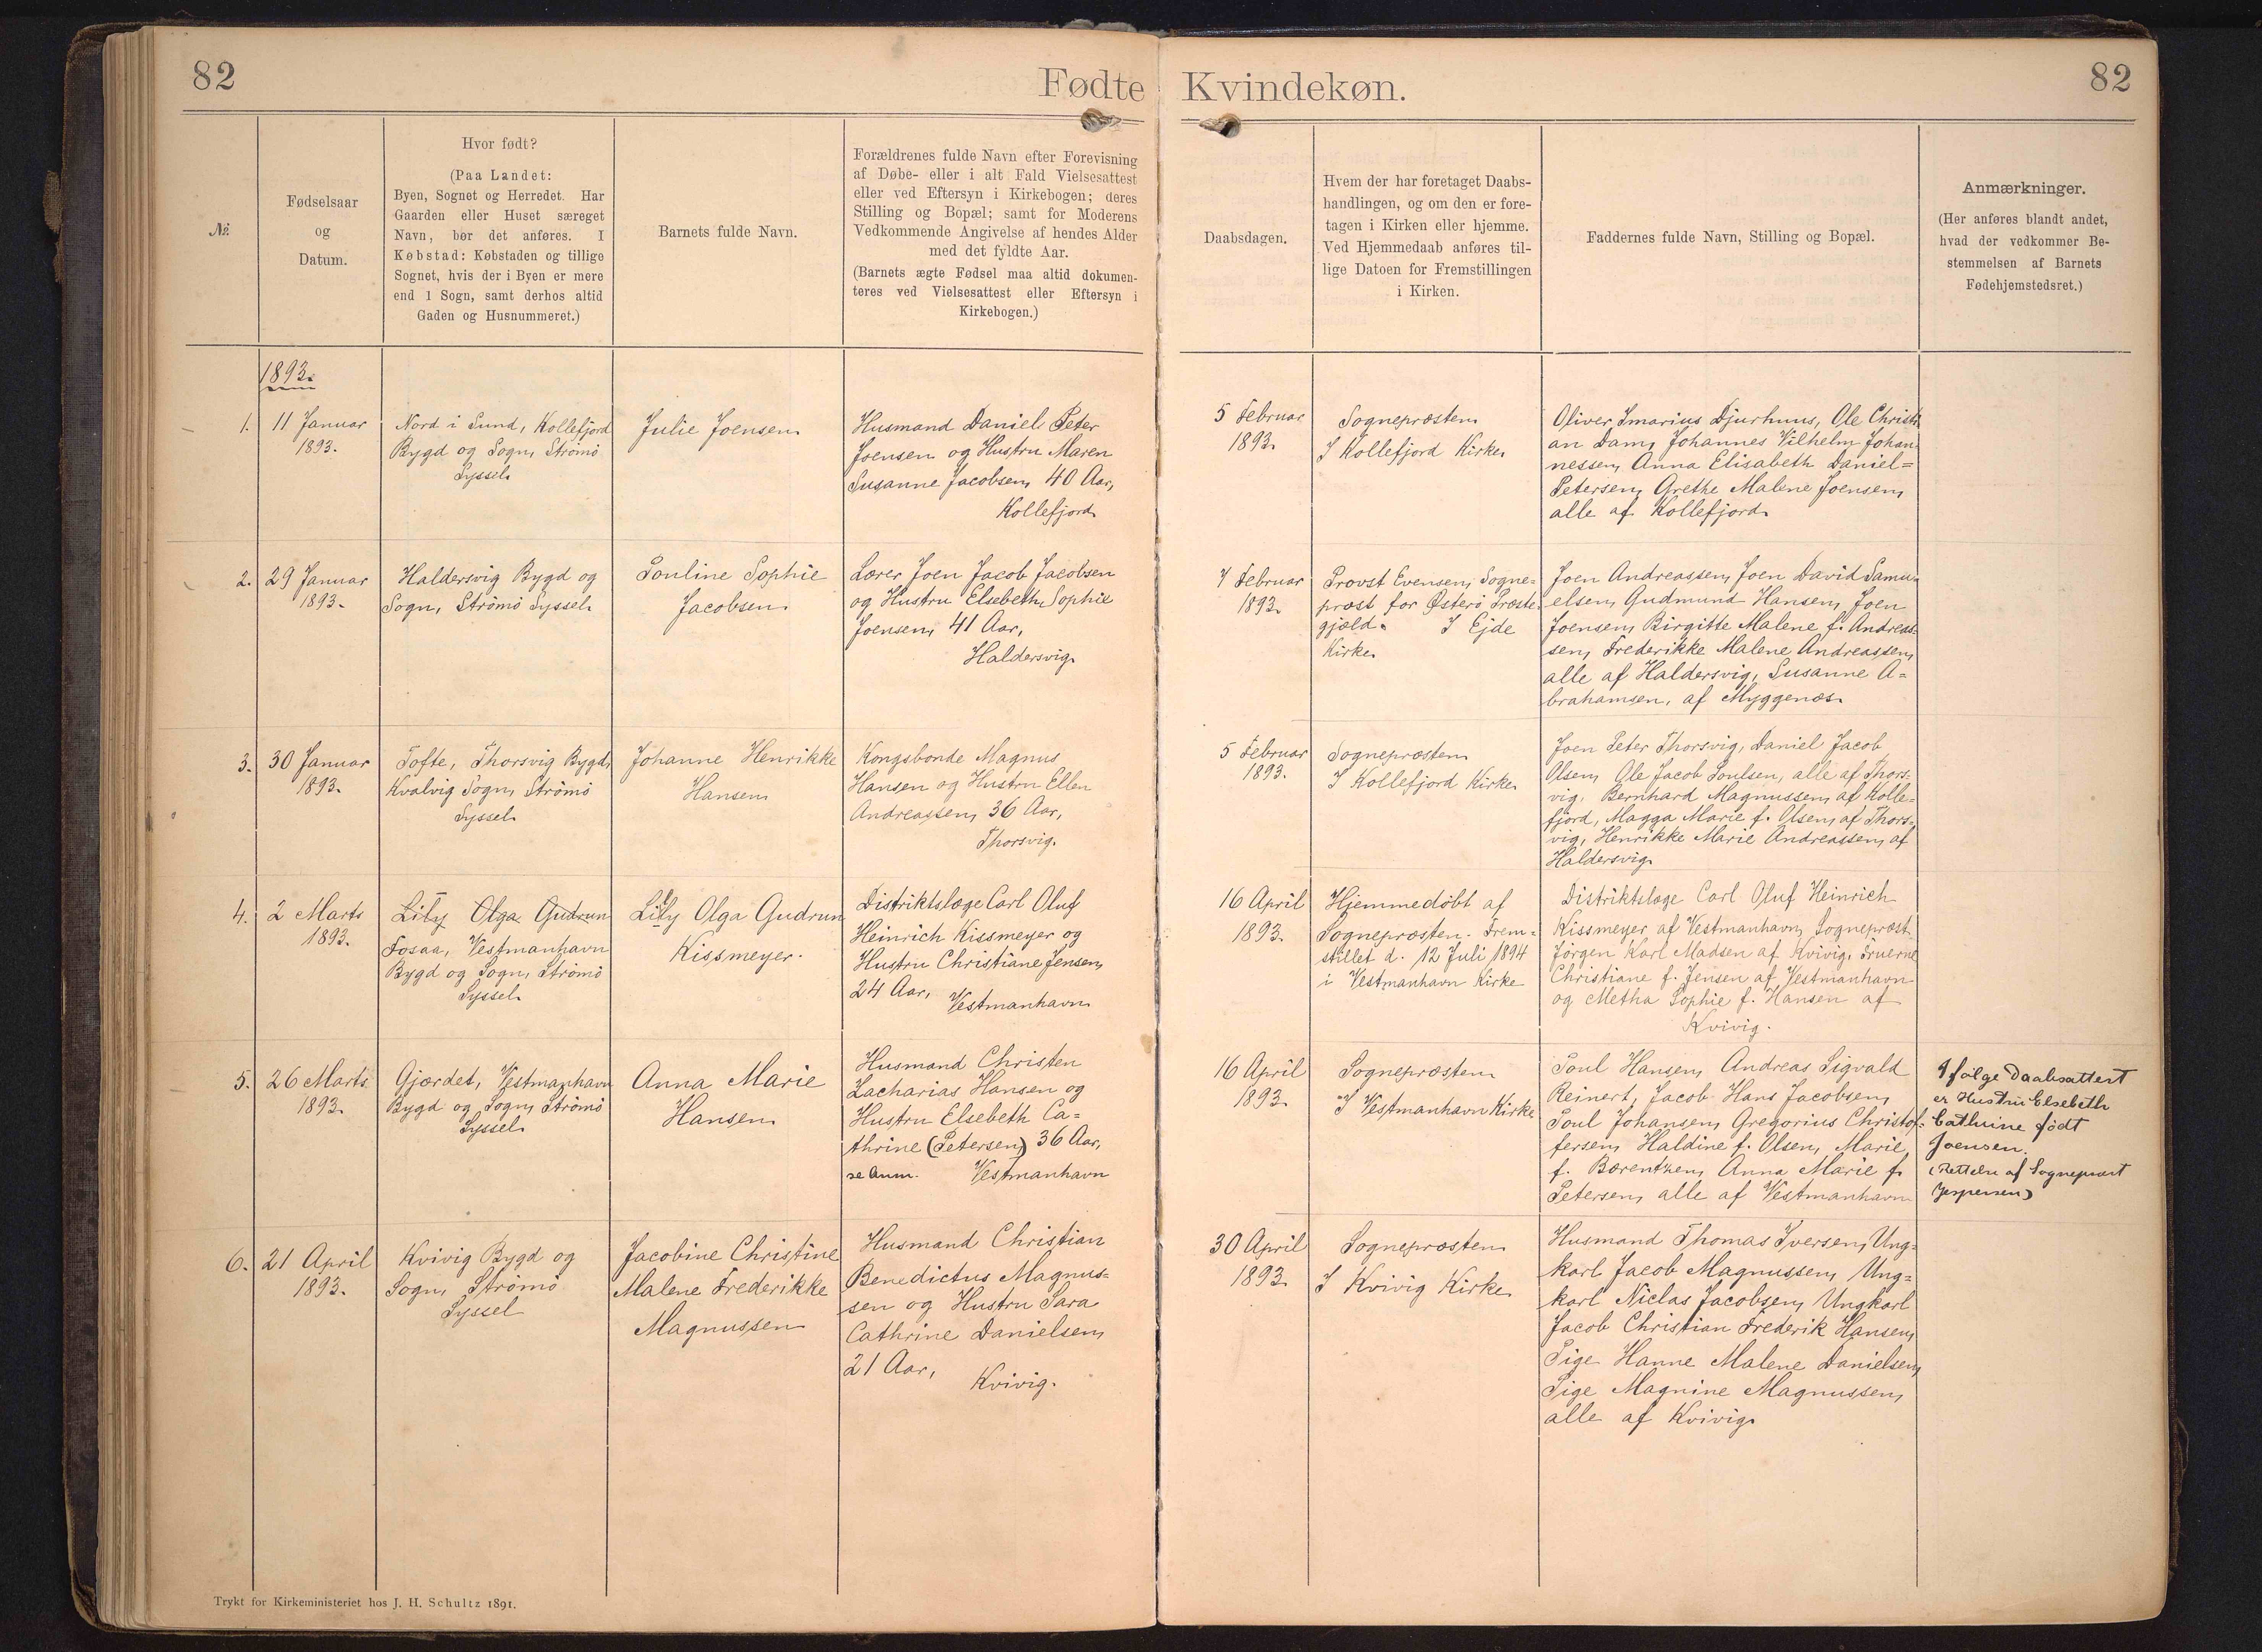 82
Fødte
Kvindekøn.
82
№.
Fødselsaar
og
Datum.
Hvor født?
(Paa Landet:
Byen, Sognet og Herredet. Har
Gaarden eller Huset særeget
Navn, bør det anføres. I
Købstad: Købstaden og tillige
Sognet, hvis der i Byen er mere
end 1 Sogn, samt derhos altid
Gaden og Husnummeret.)
Barnets fulde Navn.
Forældrenes fulde Navn efter Forevisning
af Døbe- eller i alt Fald Vielsesattest
eller ved Eftersyn i Kirkebogen; deres
Stilling og Bopæl; samt for Moderens
Vedkommende Angivelse af hendes Alder
med det fyldte Aar.
(Barnets ægte Fødsel maa altid dokumen-
teres ved Vielsesattest eller Eftersyn i
Kirkebogen.)
Daabsdagen.
Hvem der har foretaget Daabs-
handlingen, og om den er fore-
tagen i Kirken eller hjemme.
Ved Hjemmedaab anføres til-
lige Datoen for Fremstillingen
i Kirken.
Faddernes fulde Navn, Stilling og Bopæl.
Anmærkninger.
(Her anføres blandt andet,
hvad der vedkommer Be-
stemmelsen af Barnets
Fødehjemstedsret.)
1893.
1.
11 Januar
1893.
Nord i Sund, Kollefjord
Bygd og Sogn, Strömö
Syssel.
Julie Joensen.
Husmand Daniel Peter
Joensen og Hustru Maren
Susanne Jacobsen, 40 Aar,
Kollefjord.
5 Februar
1893.
Sognepræsten.
I Kollefjord Kirke.
Oliver Imarius Djurhuus, Ole Christi
an Dam, Johannes Vilhelm Johan
nessen, Anna Elisabeth Daniel=
Petersen, Grethe Malene Joensen,
alle af Kollefjord.
2.
29 Januar
1893.
Haldersvig Bygd og
Sogn, Strömö Syssel.
Pouline Sophie
Jacobsen.
Lærer Joen Jacob Jacobsen
og Hustru Elsebeth Sophie
Joensen, 41 Aar,
Haldersvig.
7 Februar
1893.
Provst Evensen, Sogne=
præst for Österö Præste
gjæld. I Ejde
Kirke.
Joen Andreassen, Joen David Samu=
elsen, Gudmund Hansen, Joen
Joensen, Birgitte Malene f. Andreas=
sen, Frederikke Malene Andreassen,
alle af Haldersvig, Susanne A=
brahamsen, af Myggenæs.
3.
30 Januar
1893.
Tofte, Thorsvig Bygd,
Kvalvig Sogn, Strömö
Syssel.
Johanne Henrikke
Hansen.
Kongsbonde Magnus
Hansen og Hustru Ellen
Andreassen, 36 Aar,
Thorsvig.
5 Februar
1893.
Sognepræsten.
I Kollefjord Kirke.
Joen Peter Thorsvig, Daniel Jacob
Olsen, Ole Jacob Poulsen, alle af Thors=
vig, Bernhard Magnussen, af Kolle=
fjord, Magga Marie f. Olsen, af Thors=
vig, Henrikke Marie Andreassen, af
Haldersvig.
4.
2 Marts
1893.
Lily Olga Gudrun
Fosaa, Vestmanhavn
Bygd og Sogn, Strömö
Syssel.
Lily Olga Gudrun
Kissmeyer.
Distriktslæge Carl Oluf
Heinrich Kissmeyer og
Hustru Christiane Jensen,
24 Aar,
Vestmanhavn.
16 April
1893.
Hjemmedöbt af
Sognepræsten. Frem=
stillet d. 12 Juli 1894
i Vestmanhavn Kirke
Distriktslæge Carl Oluf Heinrich
Kissmeyer af Vestmanhavn, Sognepræst
Jörgen Karl Madsen af Kvivig, Fruerne
Christiane f. Jensen af Vestmanhavn
og Metha Sophie f. Hansen af
Kvivig.
5.
26 Marts
1893.
Gjærdet, Vestmanhavn
Bygd og Sogn, Strömö
Syssel.
Anna Marie
Hansen.
Husmand Christen
Zacharias Hansen og
Hustru Elsebeth Ca=
thrine (Petersen) 36 Aar,
se Anm. Vestmanhavn
16 April
1893.
Sognepræsten.
I Vestmanhavn Kirke
Poul Hansen, Andreas Sigvald
Reinert, Jacob Hans Jacobsen,
Poul Johansen, Gregorius Christof=
fersen, Haldine f. Olsen, Marie
f. Bærentzen, Anna Marie f.
Petersen, alle af Vestmanhavn
I følge Daabsattest
er Hustru Elsebeth
Cathrine født
Joensen.
(Rettelse af Sognepræst
Jespersen)
6.
21 April
1893.
Kvivig Bygd og
Sogn, Strömö
Syssel
Jacobine Christine
Malene Frederikke
Magnussen
Husmand Christian
Benedictus Magnus=
sen og Hustru Sara
Cathrine Danielsen,
21 Aar,
Kvivig.
30 April
1893.
Sognepræsten.
I Kvivig Kirke.
Husmand Thomas Iversen, Ung=
karl Jacob Magnussen, Ung=
karl Niclas Jacobsen, Ungkarl
Jacob Christian Frederik Hansen,
Pige Hanne Malene Danielsen,
Pige Magnine Magnussen,
alle af Kvivig.
Trykt for Kirkeministeriet hos J. H. Schultz 1891.